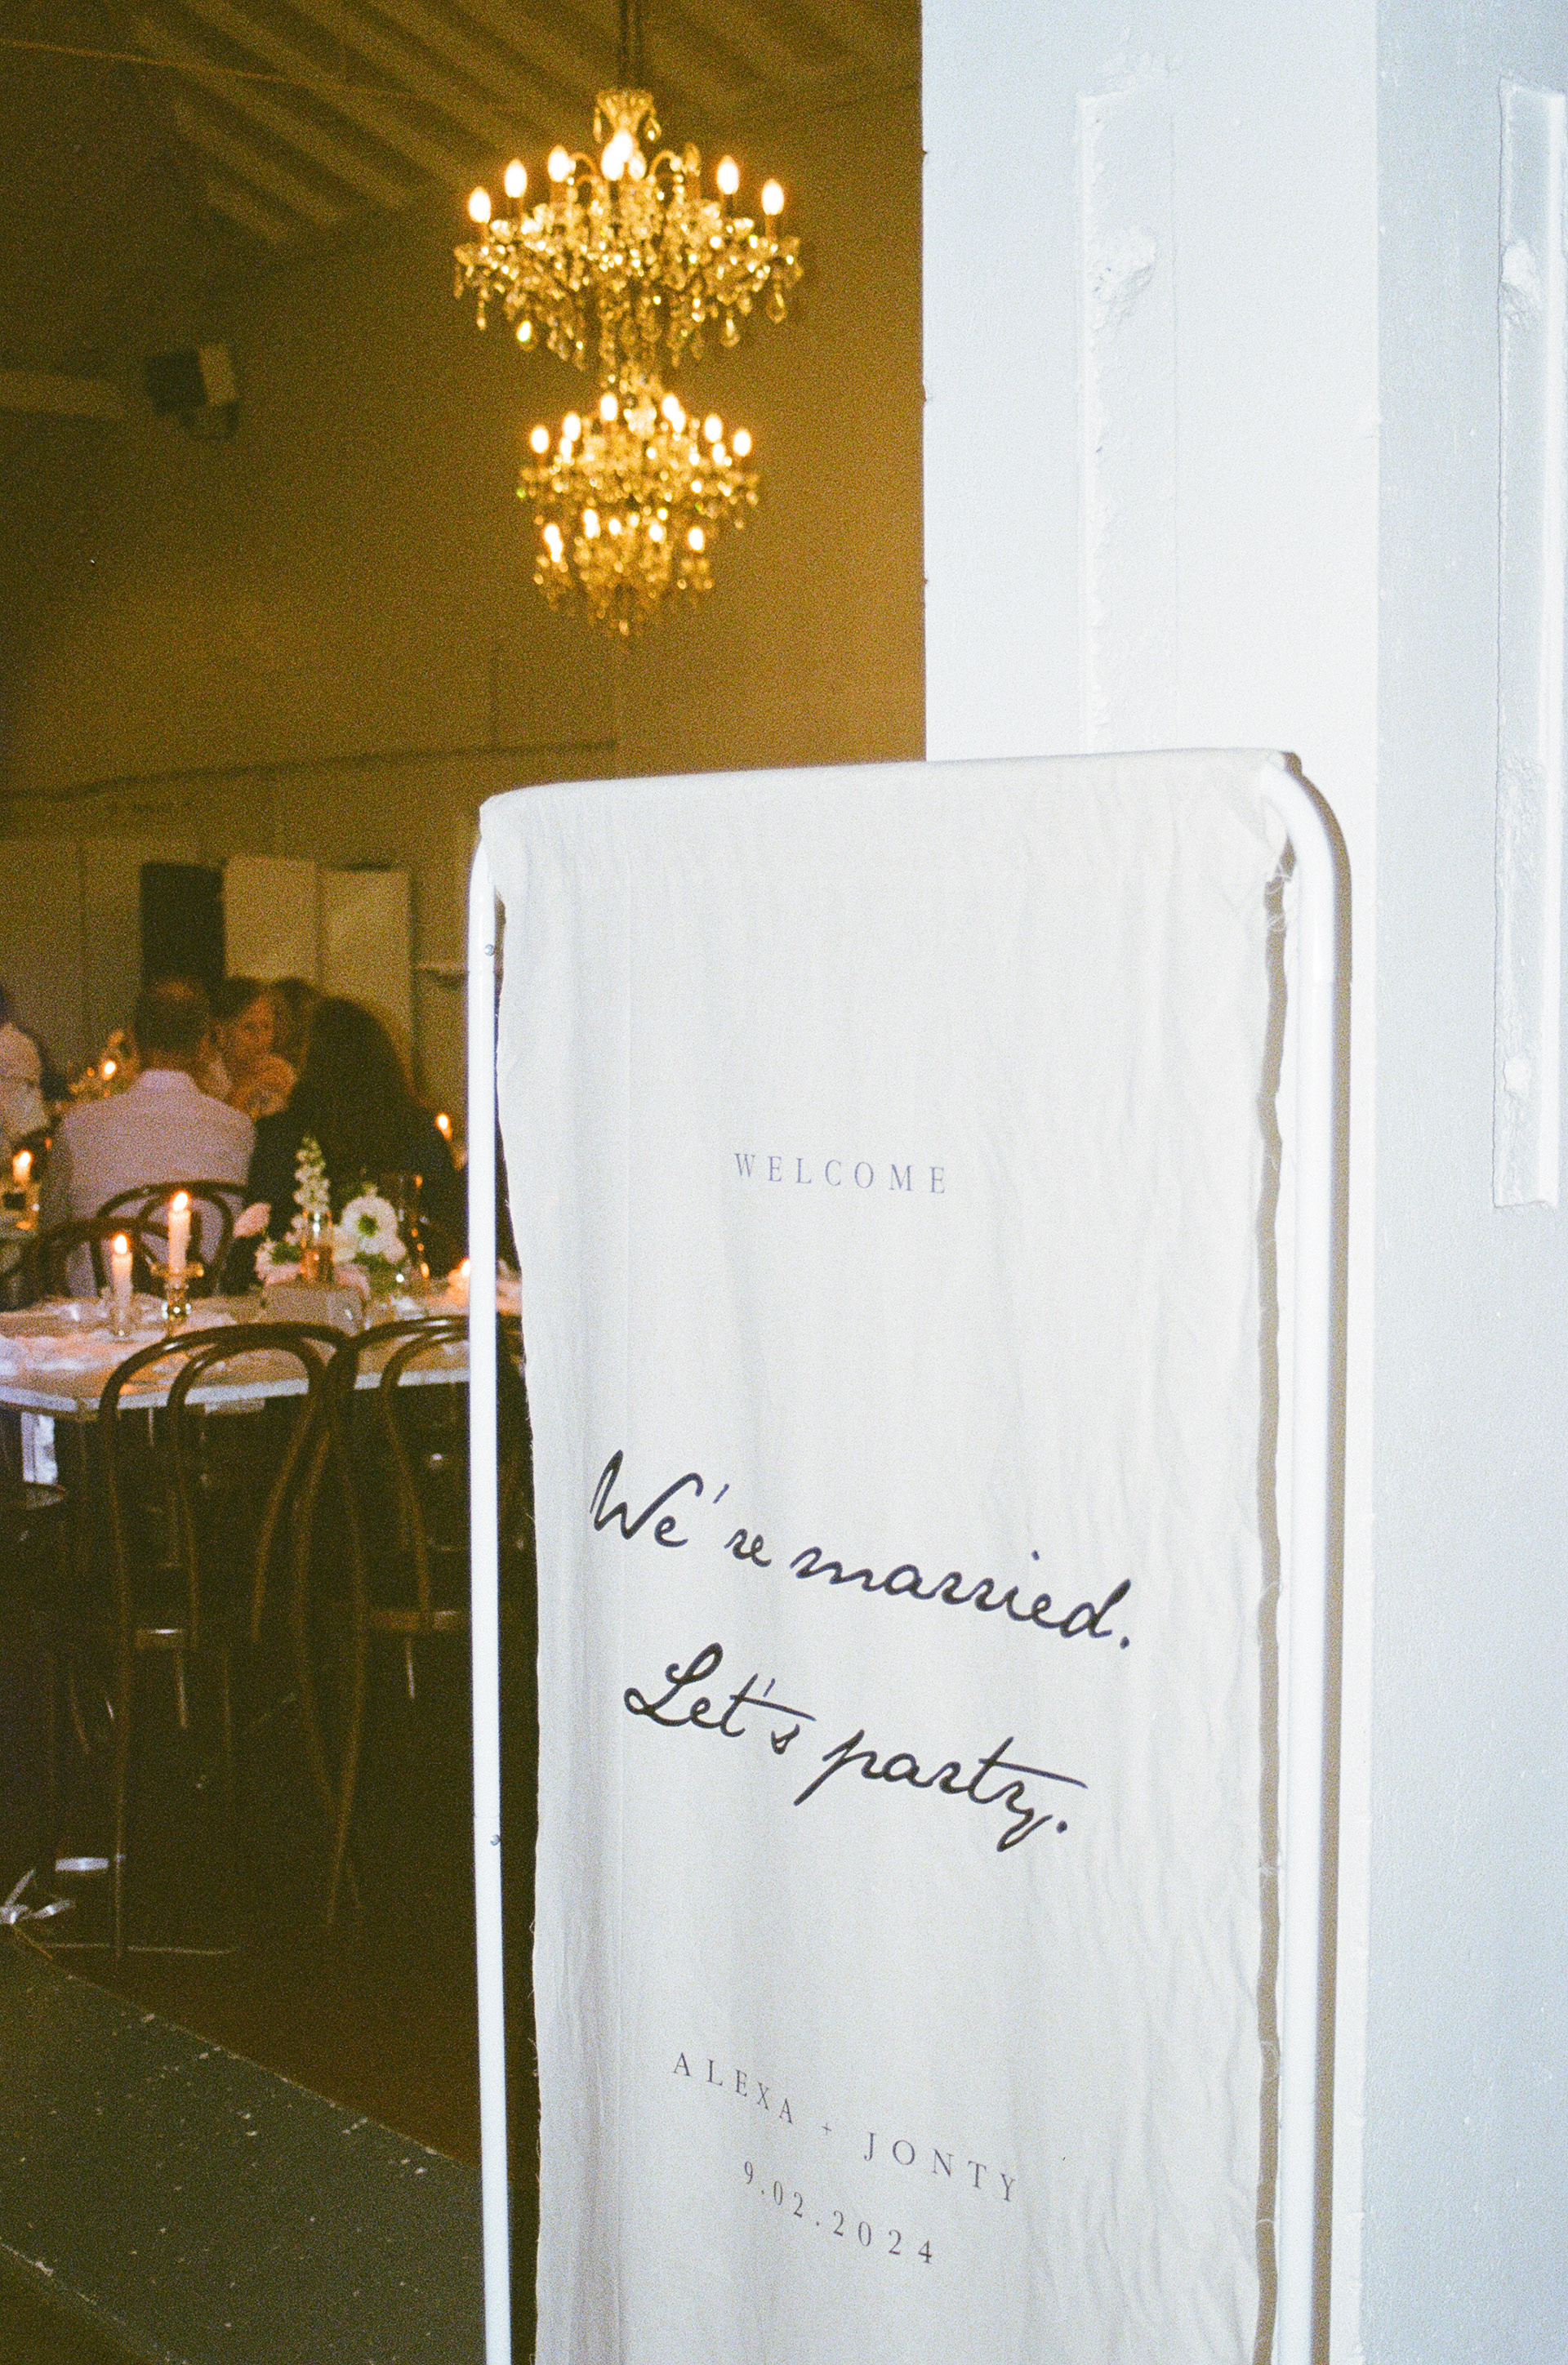 WELCOME
We're married.
Let's party.
ALEXA + JONTY
9.02.2024